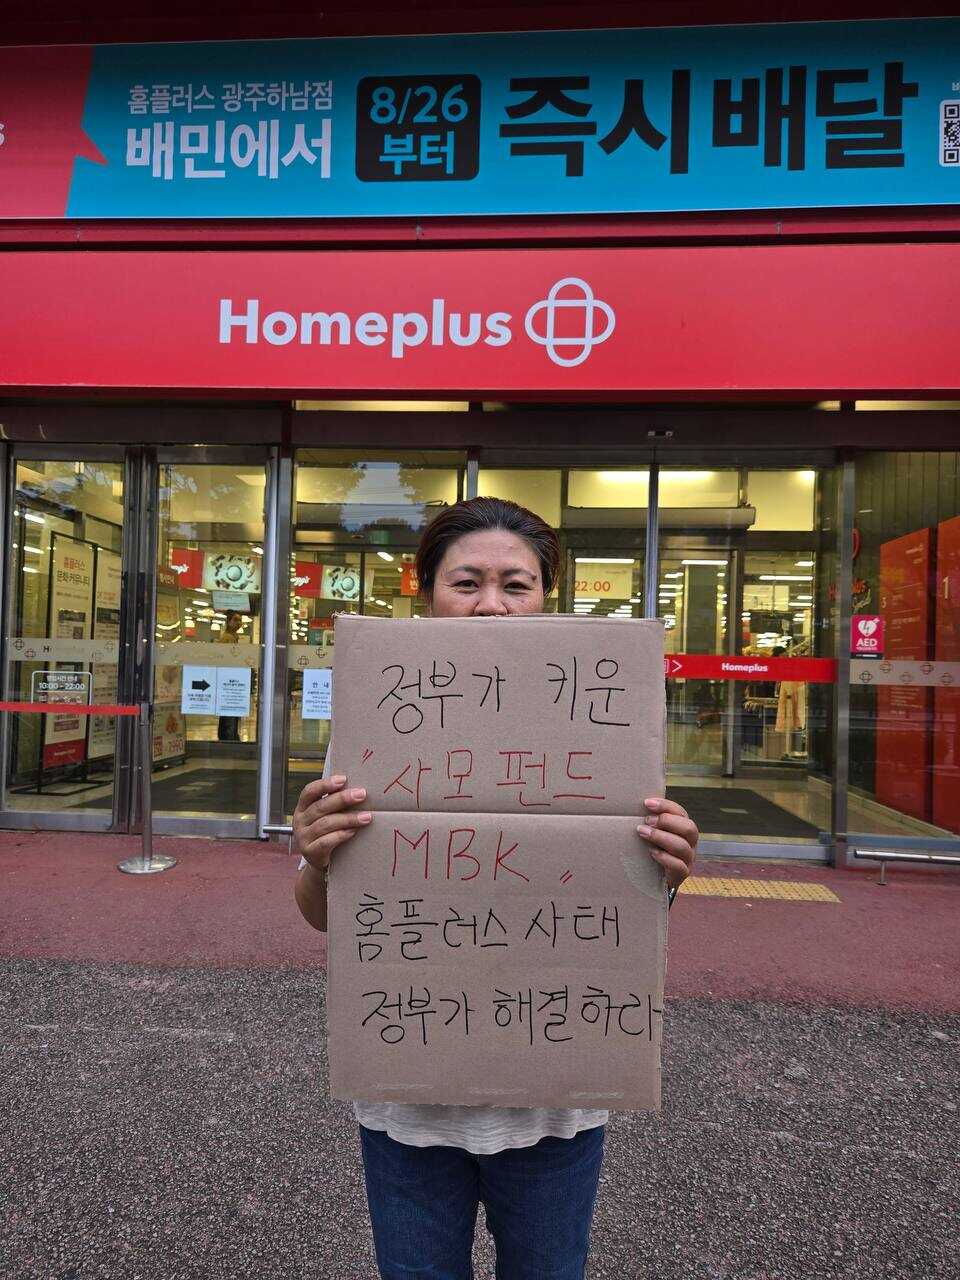 홈플러스 광주하남점
배민에서
8/26
부터
즉시배달
Homeplus
22:00
AED
Homeplus
10:00 - 22:00
안 내
정부가 키운
"사모펀드
MBK"
홈플러스 사태
정부가 해결하라